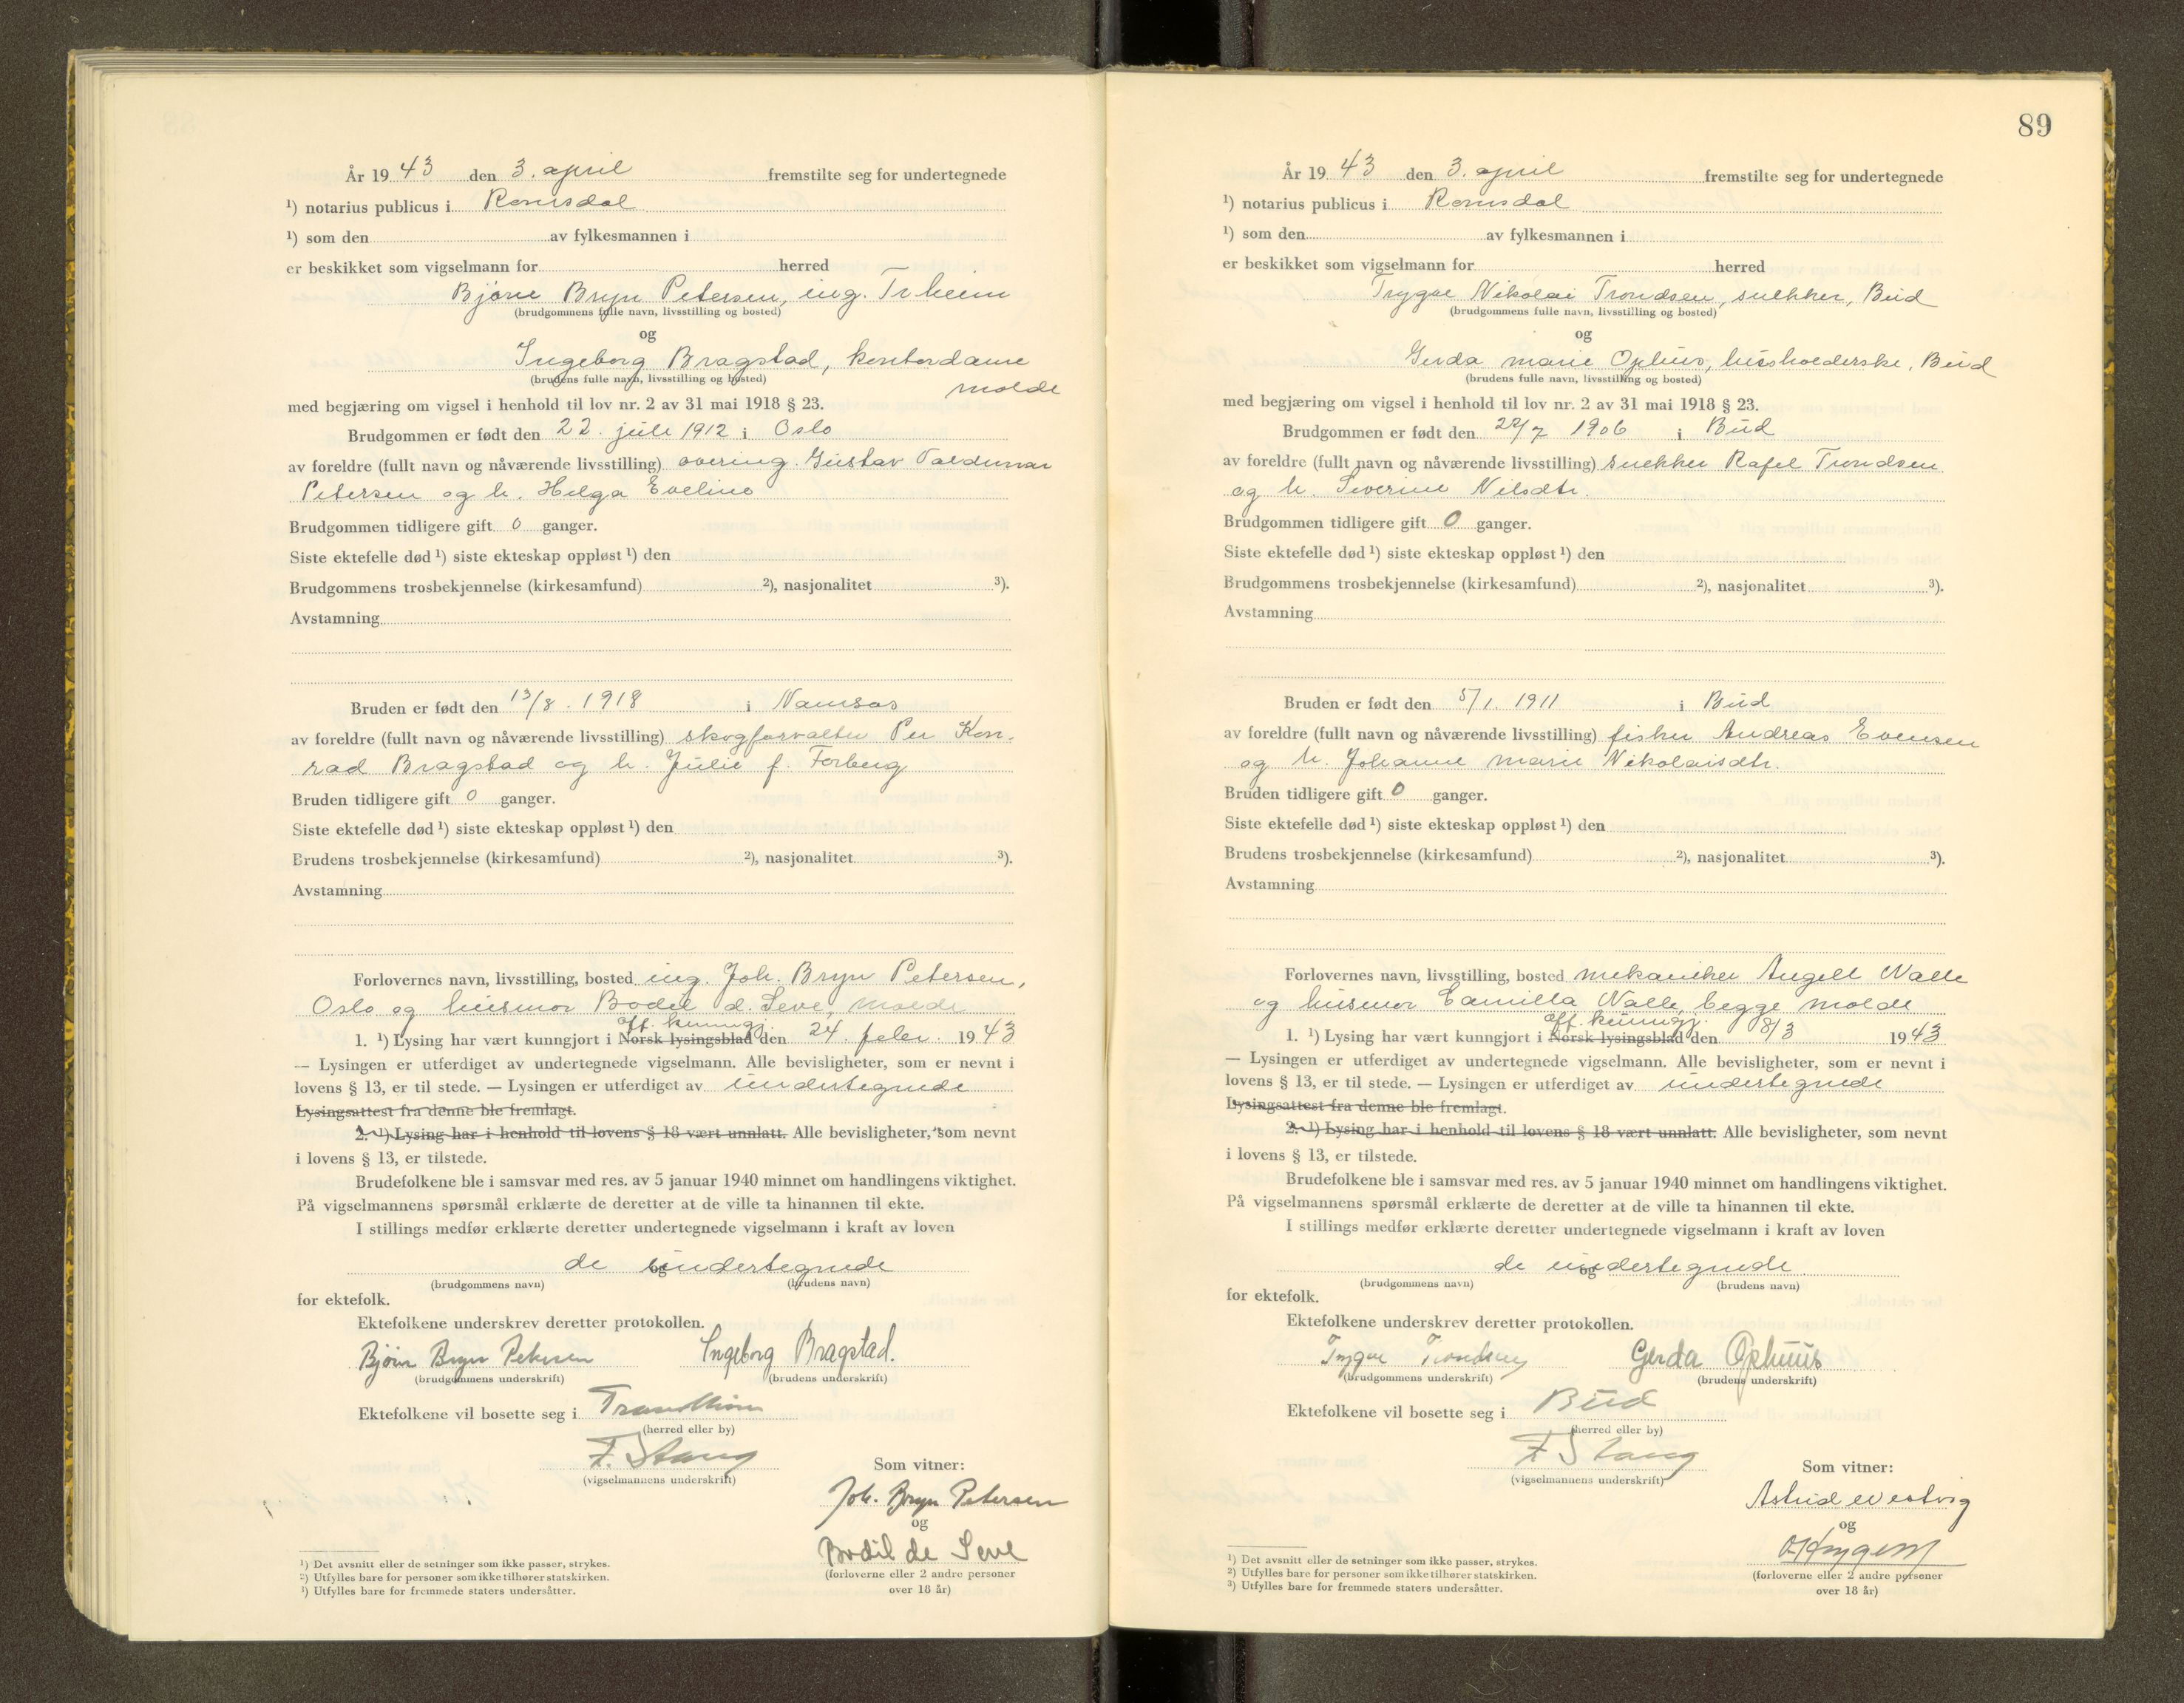 År 19 43 den 3. april fremstilte seg for undertegnede
¹) notarius publicus i Romsdal
¹) som den av fylkesmannen i
er beskikket som vigselmann for herred
Bjørn Bryn Petersen, ing. Trheim
(brudgommens fulle navn, livsstilling og bosted)
og
Ingeborg Bragstad, kontordame
(brudens fulle navn, livsstilling og bosted)
molde
med begjæring om vigsel i henhold til lov nr. 2 av 31 mai 1918 § 23.
Brudgommen er født den 22. juli 1912 i Oslo
av foreldre (fullt navn og nåværende livsstilling) overing. Gustav Valdemar
Petersen og h. Helga Eveline
Brudgommen tidligere gift 0 ganger.
Siste ektefelle død ¹) siste ekteskap oppløst ¹) den
Brudgommens trosbekjennelse (kirkesamfund) ²), nasjonalitet ³).
Avstamning
Bruden er født den 13/8. 1918 i Namsos
av foreldre (fullt navn og nåværende livsstilling) skogforvalter Per Kon-
rad Bragstad og h. Julie f. Forberg
Bruden tidligere gift 0 ganger.
Siste ektefelle død ¹) siste ekteskap oppløst ¹) den
Brudens trosbekjennelse (kirkesamfund) ²), nasjonalitet ³).
Avstamning
Forlovernes navn, livsstilling, bosted ing. Joh. Bryn Petersen,
Oslo og husmor Bodil d. Seve, molde
off. kunngj.
1. ¹) Lysing har vært kunngjort i Norsk lysingsblad den 24. febr. 19 43
— Lysingen er utferdiget av undertegnede vigselmann. Alle bevisligheter, som er nevnt i
lovens § 13, er til stede. — Lysingen er utferdiget av undertegnede
Lysingsattest fra denne ble fremlagt.
2. ¹) Lysing har i henhold til lovens § 18 vært unnlatt. Alle bevisligheter, som nevnt
i lovens § 13, er tilstede.
Brudefolkene ble i samsvar med res. av 5 januar 1940 minnet om handlingens viktighet.
På vigselmannens spørsmål erklærte de deretter at de ville ta hinannen til ekte.
I stillings medfør erklærte deretter undertegnede vigselmann i kraft av loven
de undertegnede
og
(brudgommens navn) (brudens navn)
for ektefolk.
Ektefolkene underskrev deretter protokollen.
Bjørn Bryn Petersen Ingeborg Bragstad.
(brudgommens underskrift) (brudens underskrift)
Ektefolkene vil bosette seg i Trondheim
(herred eller by)
F. Stang
(vigselmannens underskrift)
Som vitner:
Joh. Bryn Petersen
og
Bodil de Seve
(forloverne eller 2 andre personer
over 18 år)
¹) Det avsnitt eller de setninger som ikke passer, strykes.
²) Utfylles bare for personer som ikke tilhører statskirken.
³) Utfylles bare for fremmede staters undersåtter.
89
År 19 43 den 3. april fremstilte seg for undertegnede
¹) notarius publicus i Romsdal
¹) som den av fylkesmannen i
er beskikket som vigselmann for herred
Trygve Nikolai Trondsen, snekker, Bud
(brudgommens fulle navn, livsstilling og bosted)
og
Gerda marie Ophus, husholderske, Bud
(brudens fulle navn, livsstilling og bosted)
med begjæring om vigsel i henhold til lov nr. 2 av 31 mai 1918 § 23.
Brudgommen er født den 1906 i Bud
av foreldre (fullt navn og nåværende livsstilling) snekker Rafel Trondsen
og h. Severine Nilsdtr.
Brudgommen tidligere gift 0 ganger.
Siste ektefelle død ¹) siste ekteskap oppløst ¹) den
Brudgommens trosbekjennelse (kirkesamfund) ²), nasjonalitet ³).
Avstamning
Bruden er født den 5/1. 1911 i Bud
av foreldre (fullt navn og nåværende livsstilling) fisker Andreas Evensen
og h. Johanne marie Nikolaisdtr.
Bruden tidligere gift 0 ganger.
Siste ektefelle død ¹) siste ekteskap oppløst ¹) den
Brudens trosbekjennelse (kirkesamfund) ²), nasjonalitet ³).
Avstamning
Forlovernes navn, livsstilling, bosted mekaniker Angell Nalle
og husmor Camilla Nalle, begge molde
off. kunngj.
1. ¹) Lysing har vært kunngjort i Norsk lysingsblad den 8/3 19 43
— Lysingen er utferdiget av undertegnede vigselmann. Alle bevisligheter, som er nevnt i
lovens § 13, er til stede. — Lysingen er utferdiget av undertegnede
Lysingsattest fra denne ble fremlagt.
2. ¹) Lysing har i henhold til lovens § 18 vært unnlatt. Alle bevisligheter, som nevnt
i lovens § 13, er tilstede.
Brudefolkene ble i samsvar med res. av 5 januar 1940 minnet om handlingens viktighet.
På vigselmannens spørsmål erklærte de deretter at de ville ta hinannen til ekte.
I stillings medfør erklærte deretter undertegnede vigselmann i kraft av loven
de undertegnede
og
(brudgommens navn) (brudens navn)
for ektefolk.
Ektefolkene underskrev deretter protokollen.
Trygve Trondsen Gerda Ophuus
(brudgommens underskrift) (brudens underskrift)
Ektefolkene vil bosette seg i Bud
(herred eller by)
F Stang
(vigselmannens underskrift)
Som vitner:
Astrid Westvig
og
(forloverne eller 2 andre personer
over 18 år)
¹) Det avsnitt eller de setninger som ikke passer, strykes.
²) Utfylles bare for personer som ikke tilhører statskirken.
³) Utfylles bare for fremmede staters undersåtter.